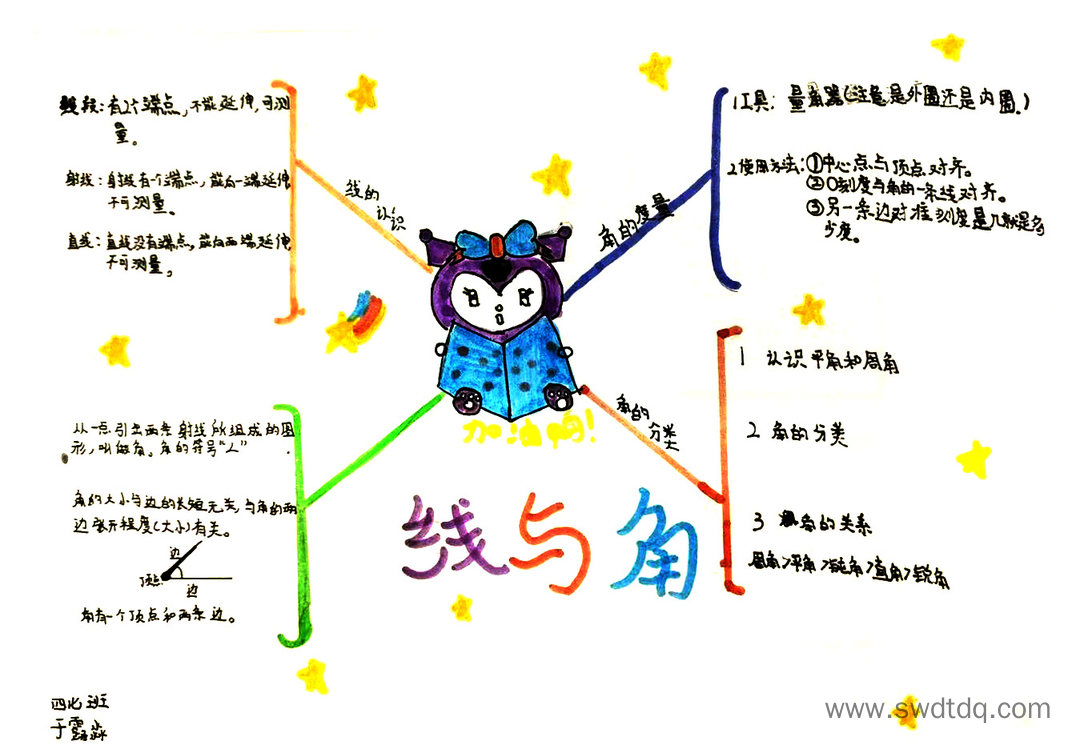 线段：有2个端点，不能延伸，可测
量。
射线：射线有一个端点，能向一端延伸
不可测量。
直线：直线没有端点，能向两端延伸
不可测量。
线的
认识
角的度量
1工具：量角器(注意是外圈还是内圈.)
2使用方法：①中心点与顶点对齐。
②0刻度与角的一条线对齐。
③另一条边对准刻度是几就是多
少度。
从一点引出两条射线所组成的图
形，叫做角。角的符号“∠”
角的大小与边的长短无关，与角的两
边张开程度(大小)有关。
边
顶点
边
角有一个顶点和两条边。
角的
分类
1 认识平角和周角
2 角的分类
3 角的关系
周角>平角>钝角>直角>锐角
加油鸭！
线与角
四(6)班
www.swdtdq.com